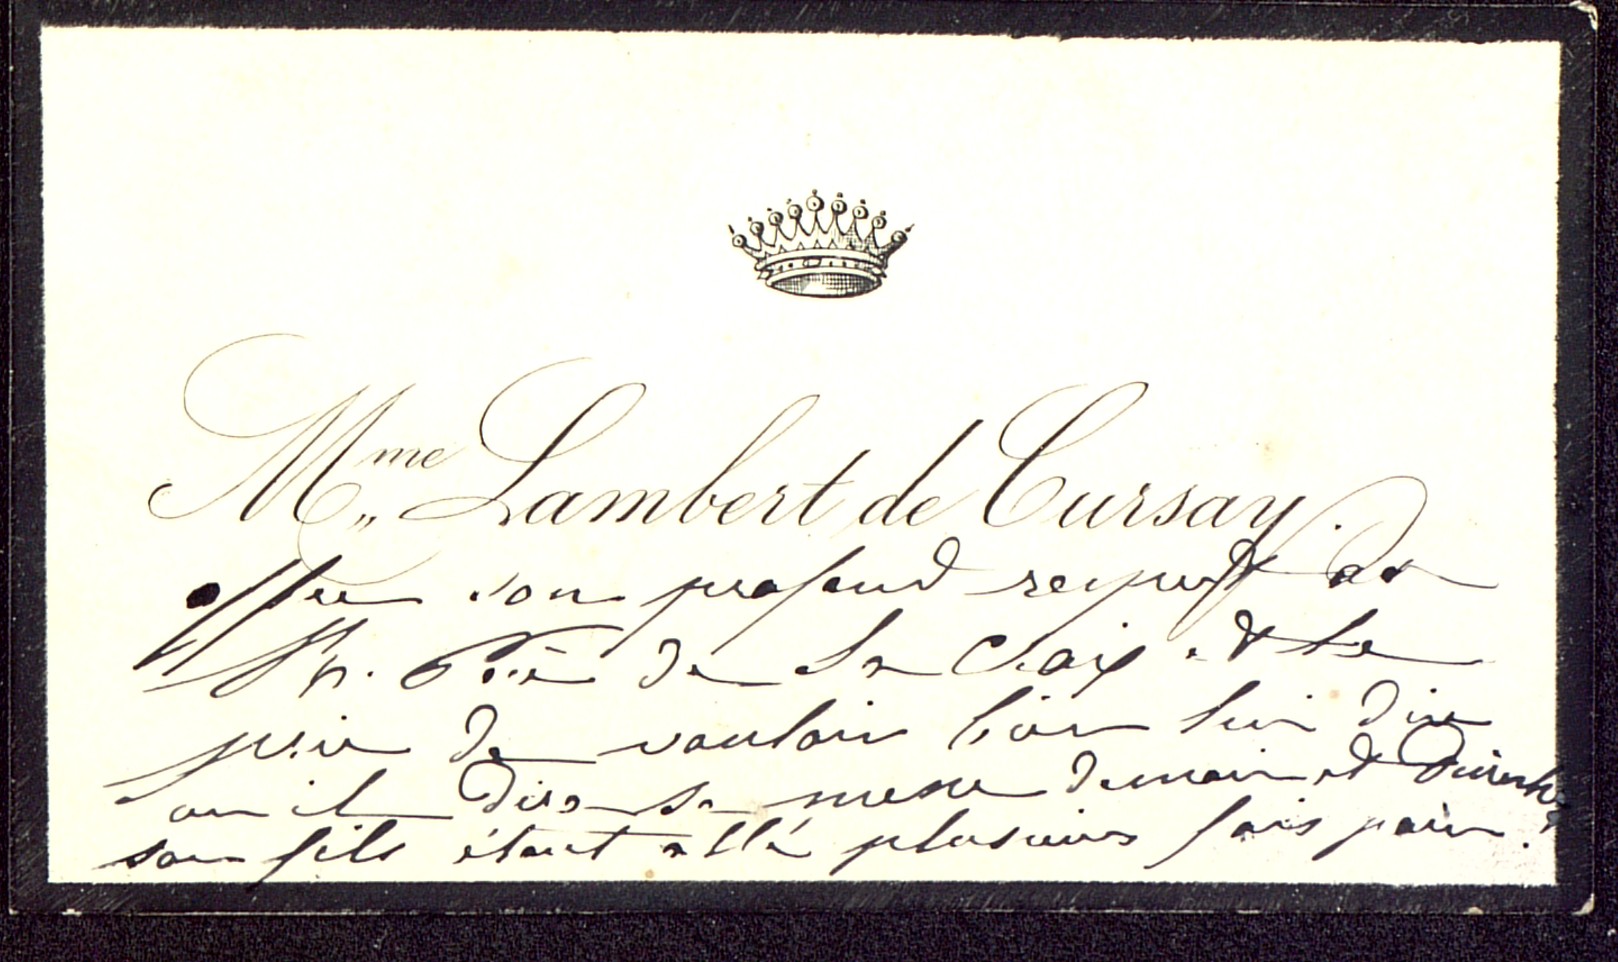 Mme Lambert de Cursay.
offre son profond respect au
R. p. de la Croix et le
prie de vouloir bien lui dire
où il dira sa messe demain et dimanche
son fils étant allé plusieurs fois pour